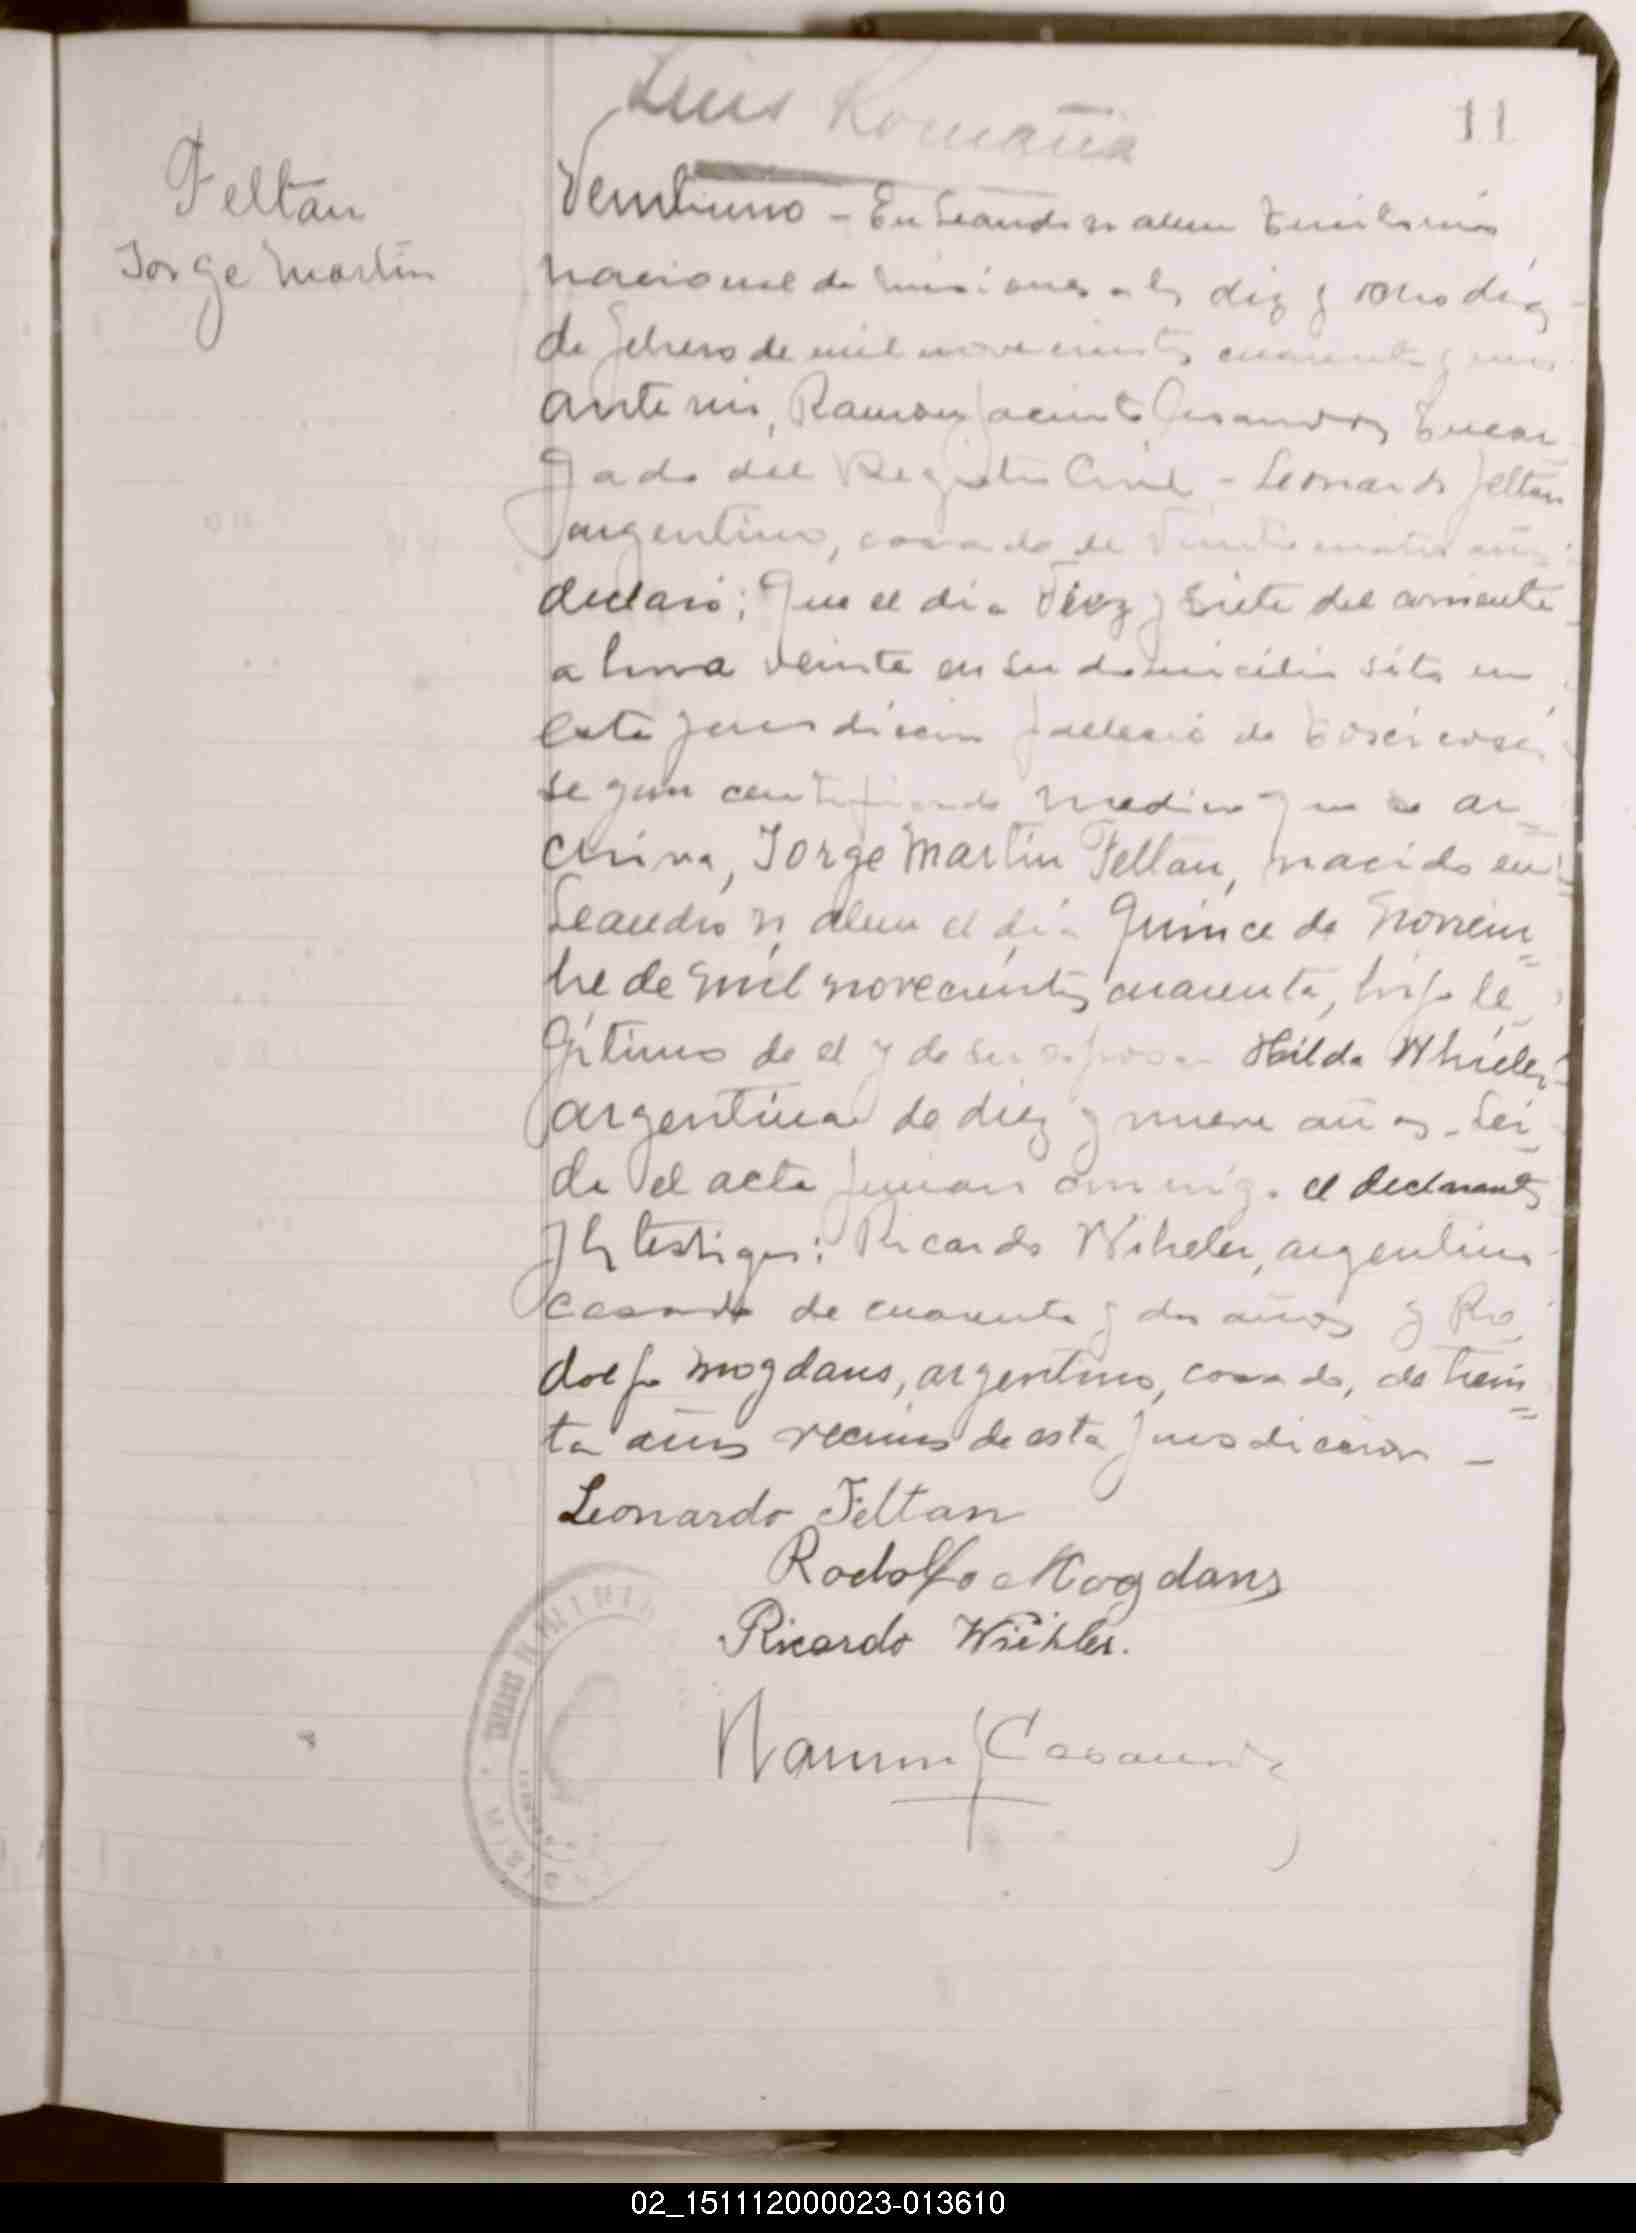 Luis Romaña
11
Feltan
Jorge Martin
Veintiuno - En Leandro N alem Territorio
nacional de Misiones a los diez y ocho dias
de febrero de mil novecientos cuarenta y uno
ante mi, Ramon Jacinto Encar
gado del Registro Civil - Leonardo Feltan
argentino, casado de años
declaró; Que el dia Diez y Siete del corriente
a hora veinte en su domicilio sito en
esta jurisdicion fallecio de
segun certificado medico que se ar
chiva, Jorge Martin Feltan, nacido en
Leandro N. alem el dia Quince de Noviem
bre de mil novecientos cuarenta, hijo le
gitimo de el y de su esposa Hilda Whieler
argentina de diez y nueve años - Lei
da el acta firman conmigo el declarante
y los testigos: Ricardo Wiheler, argentino
casado de cuarenta y dos años y Ro
dolfo Mogdans, argentino, casado, de trein
ta años vecinos de esta jurisdiccion -
Leonardo Feltan
Rodolfo Mogdans
Ricardo Wiehler.
Ramon J
02_151112000023-013610